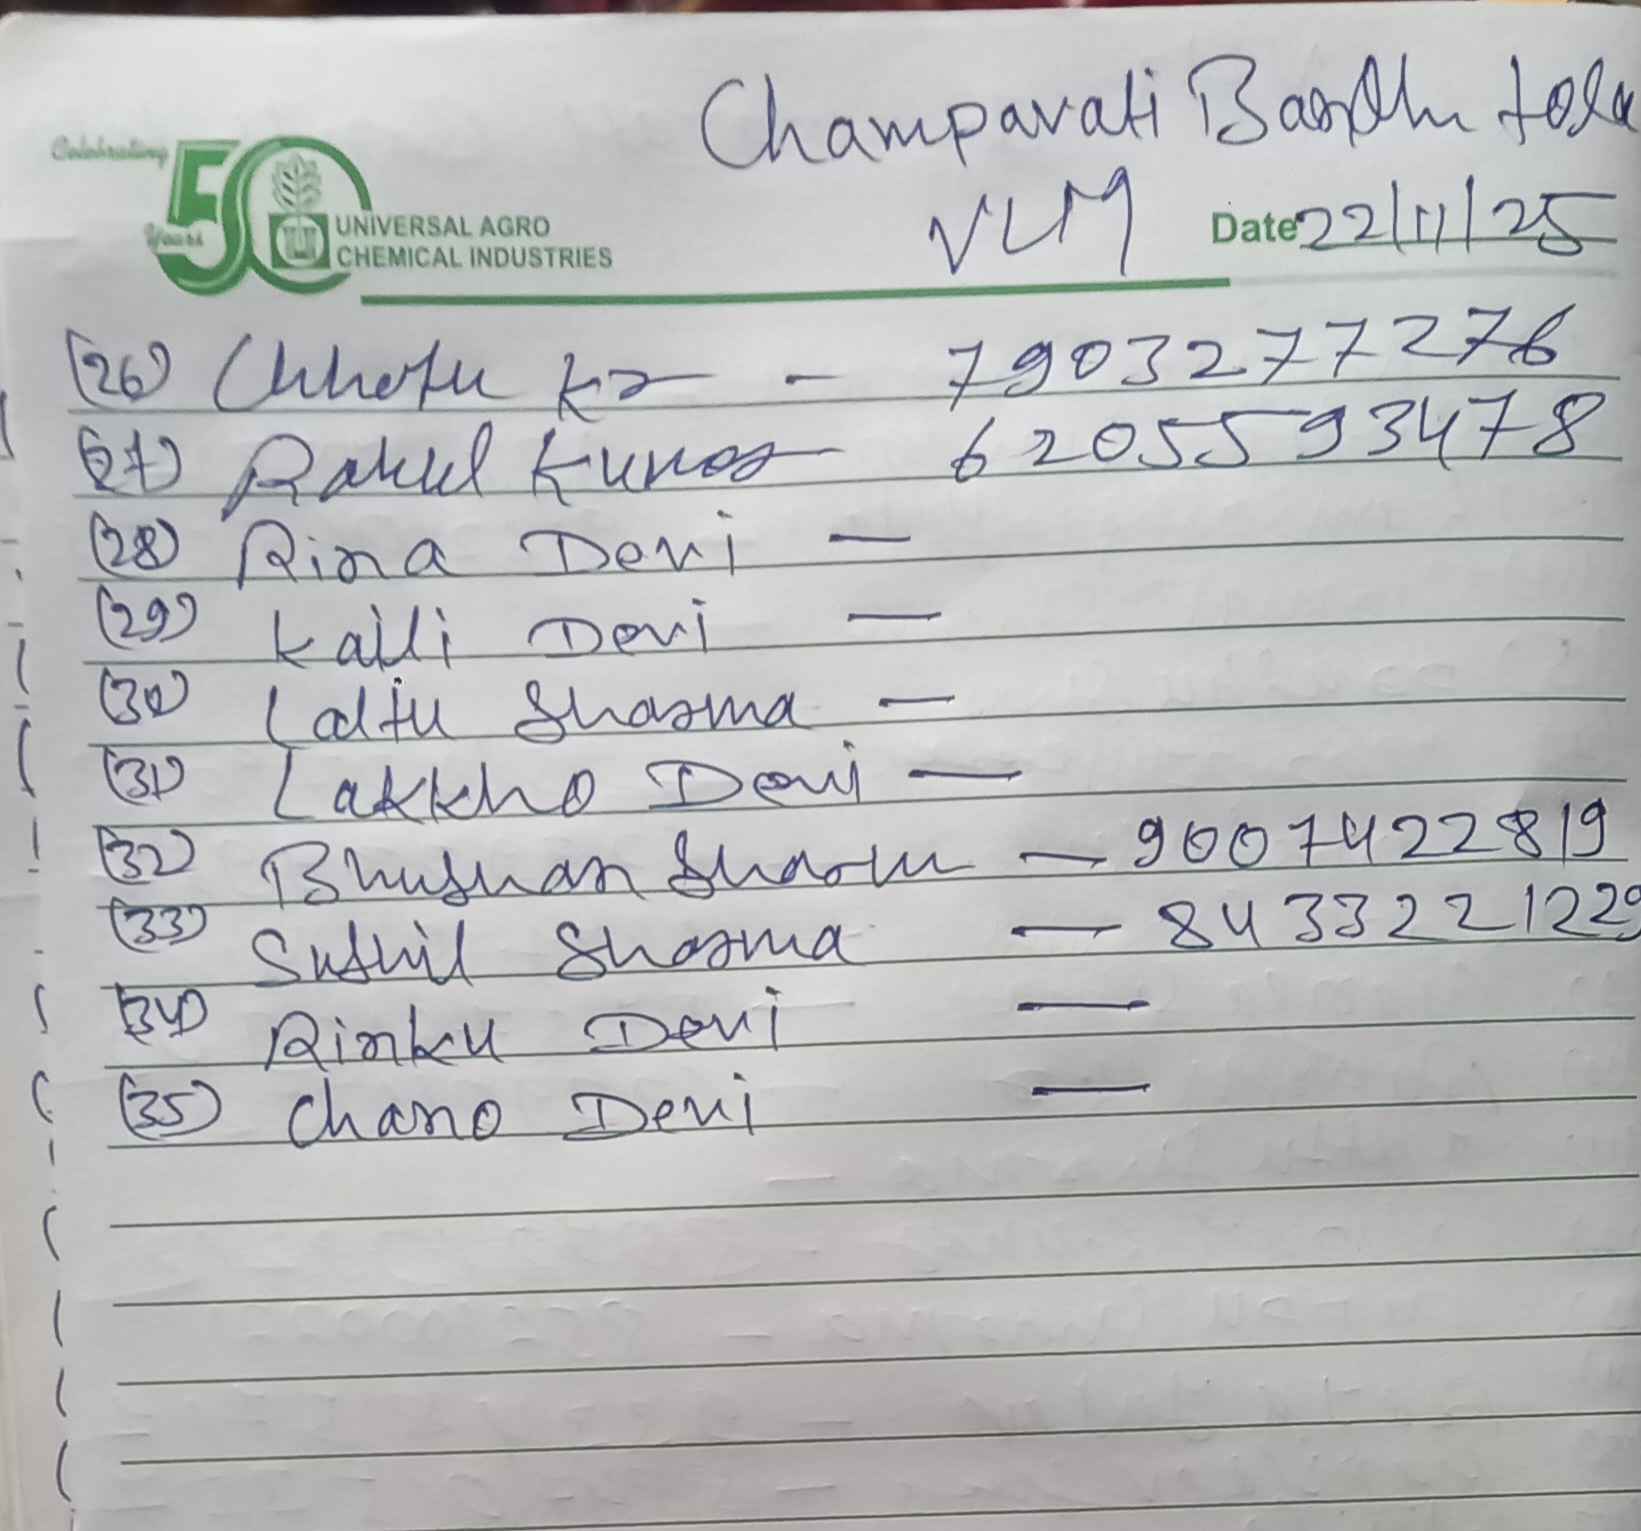 Champavati Bandh tola
Celebrating
50
Years
UNIVERSAL AGRO
CHEMICAL INDUSTRIES
VLM Date 22/11/25
(26) Chhotu Kr - 7903277276
(27) Rahul Kumar 6205593478
(28) Rina Devi —
(29) Kaili Devi —
(30) Laltu Sharma —
(31) Lakkho Devi —
(32) Bhushan Sharma — 9007422819
(33) Sushil Sharma — 8433221229
(34) Rinku Devi —
(35) Chano Devi —